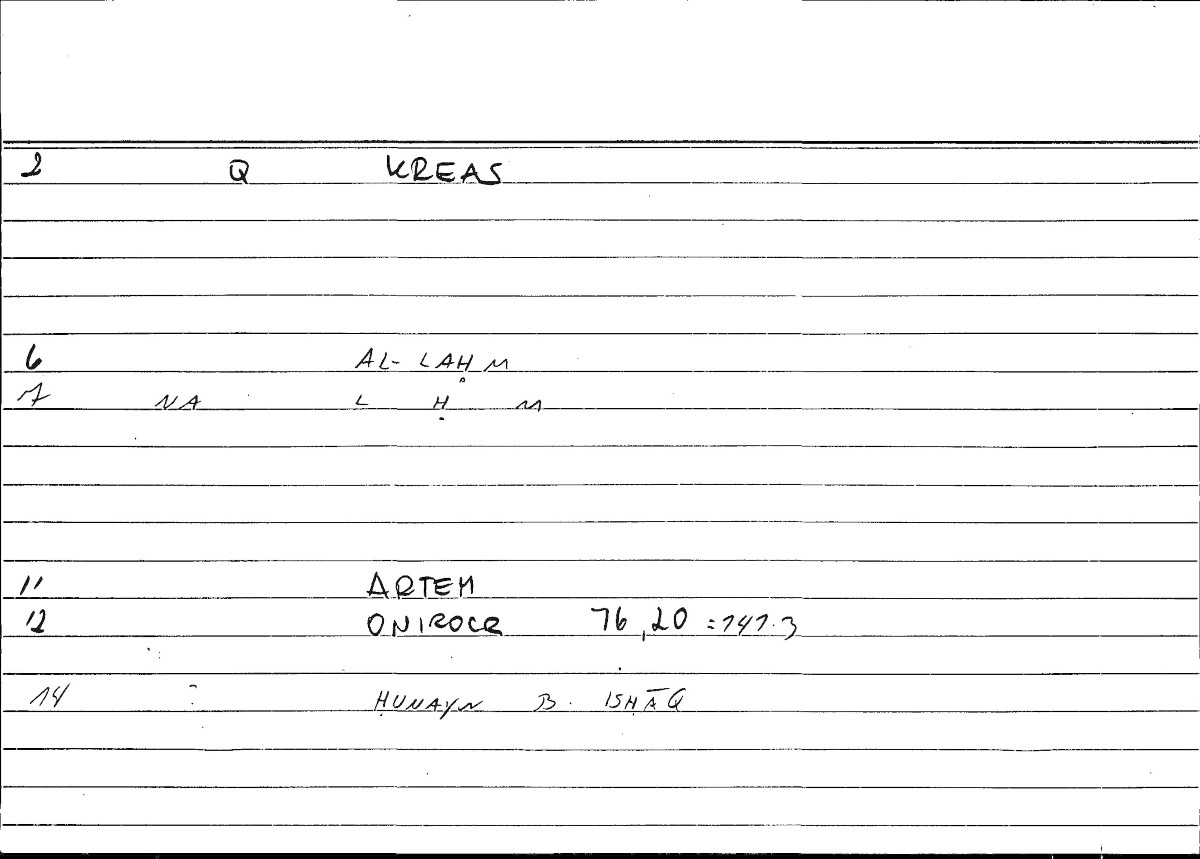 2 Q KREAS
6 AL-LAḤM
7 NA L Ḥ M
11 ARTEM
12 ONIROCR 76,20 =141.3
14 ḤUNAYN B. ISḤĀQ